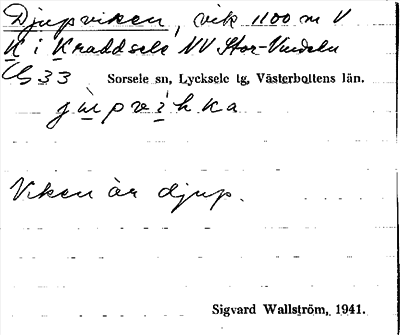 Djupviken, vik 1100 m V
K i Kraddsele NV Stor-Vindeln
33 Sorsele sn, Lycksele lg, Västerbottens län.
jùpvìkka
Viken är djup.
Sigvard Wallström, 1941.